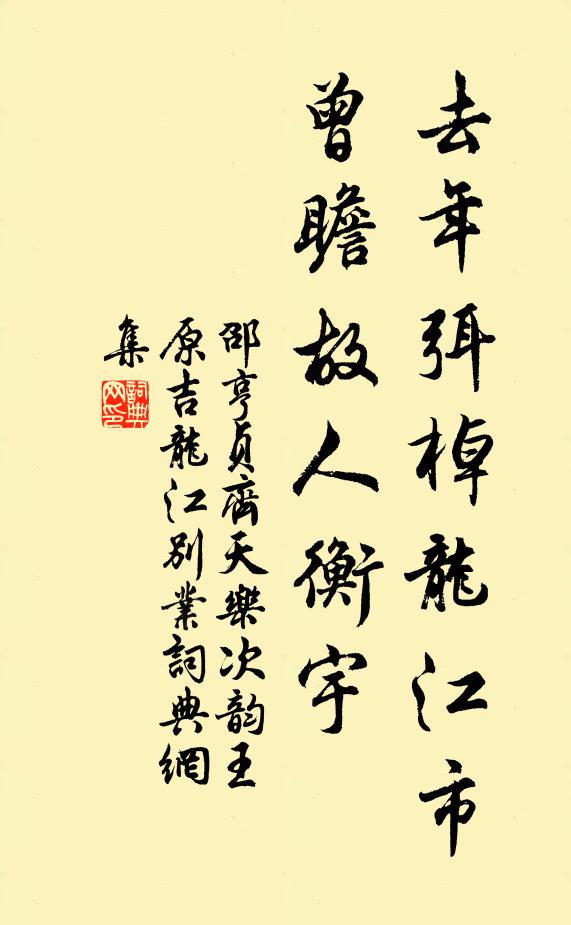 去年弭棹龍江市
曾瞻故人衡宇
邵亨貞齊天樂次韵王
原吉龍江別業詞典網
集
詞典
网印